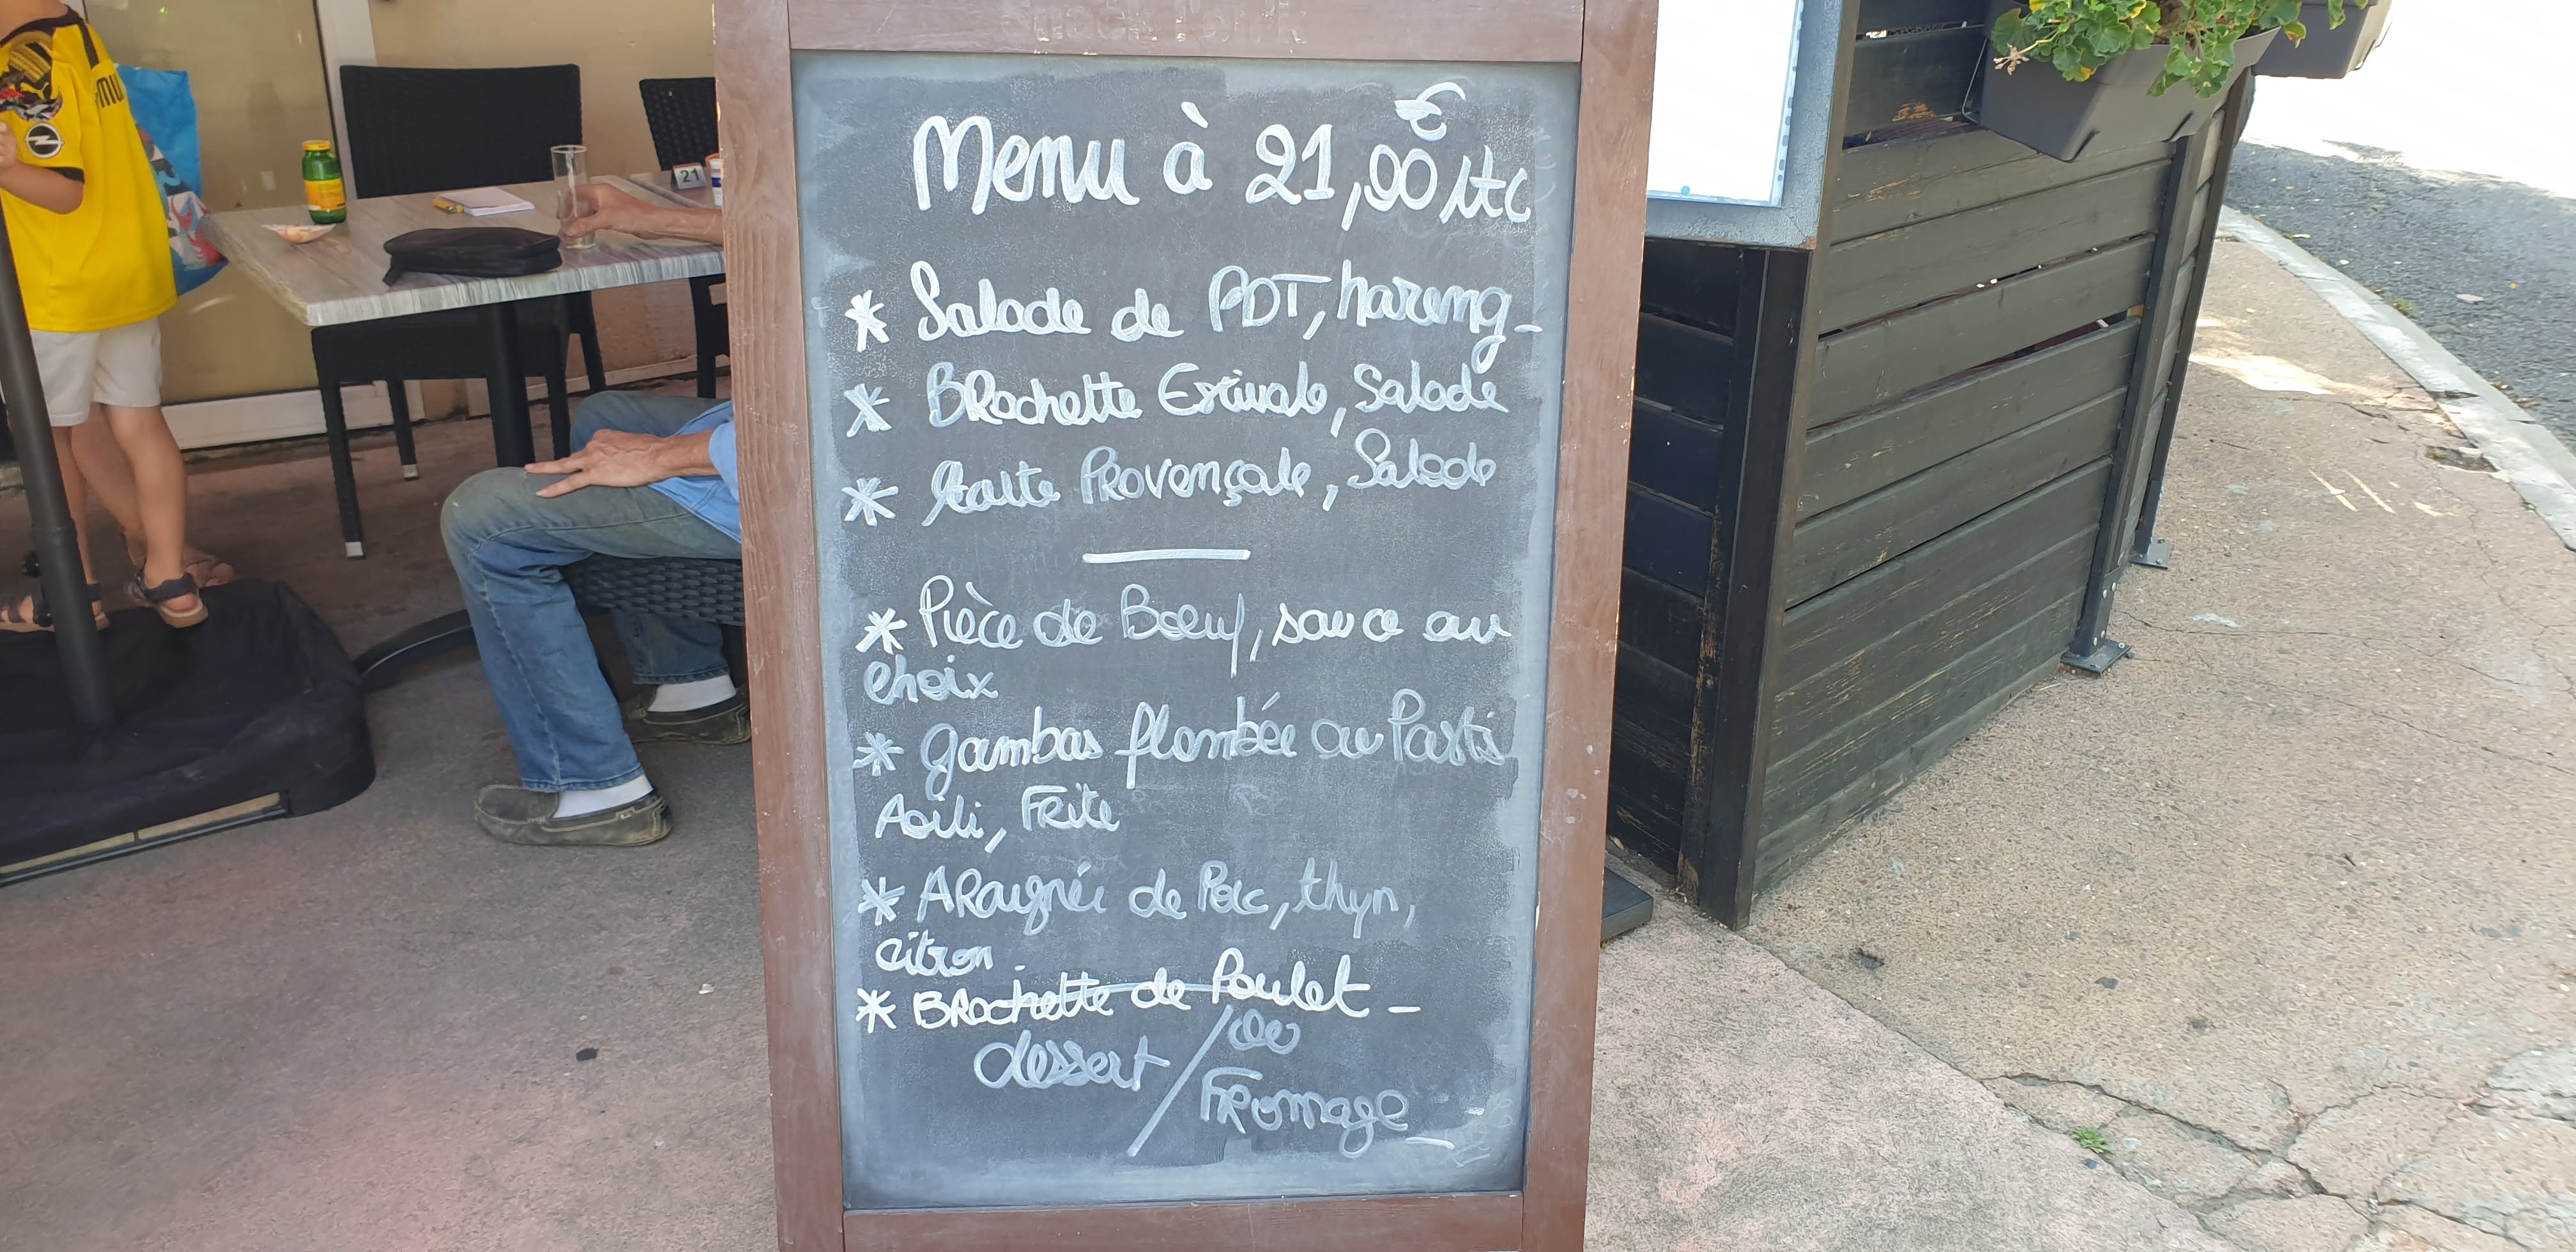 Menu à 21,90€ ttc
* Salade de PDT, hareng -
* BRochette Estivale, Salade
* tarte PRovençale, Salade
* Pièce de Boeuf, sauce au
choix
* gambas flambée au Pastis
Aoili, FRite
* ARaignée de Porc, thyn,
citron
* BRochette de Poulet -
dessert / ou
FRomage -
21